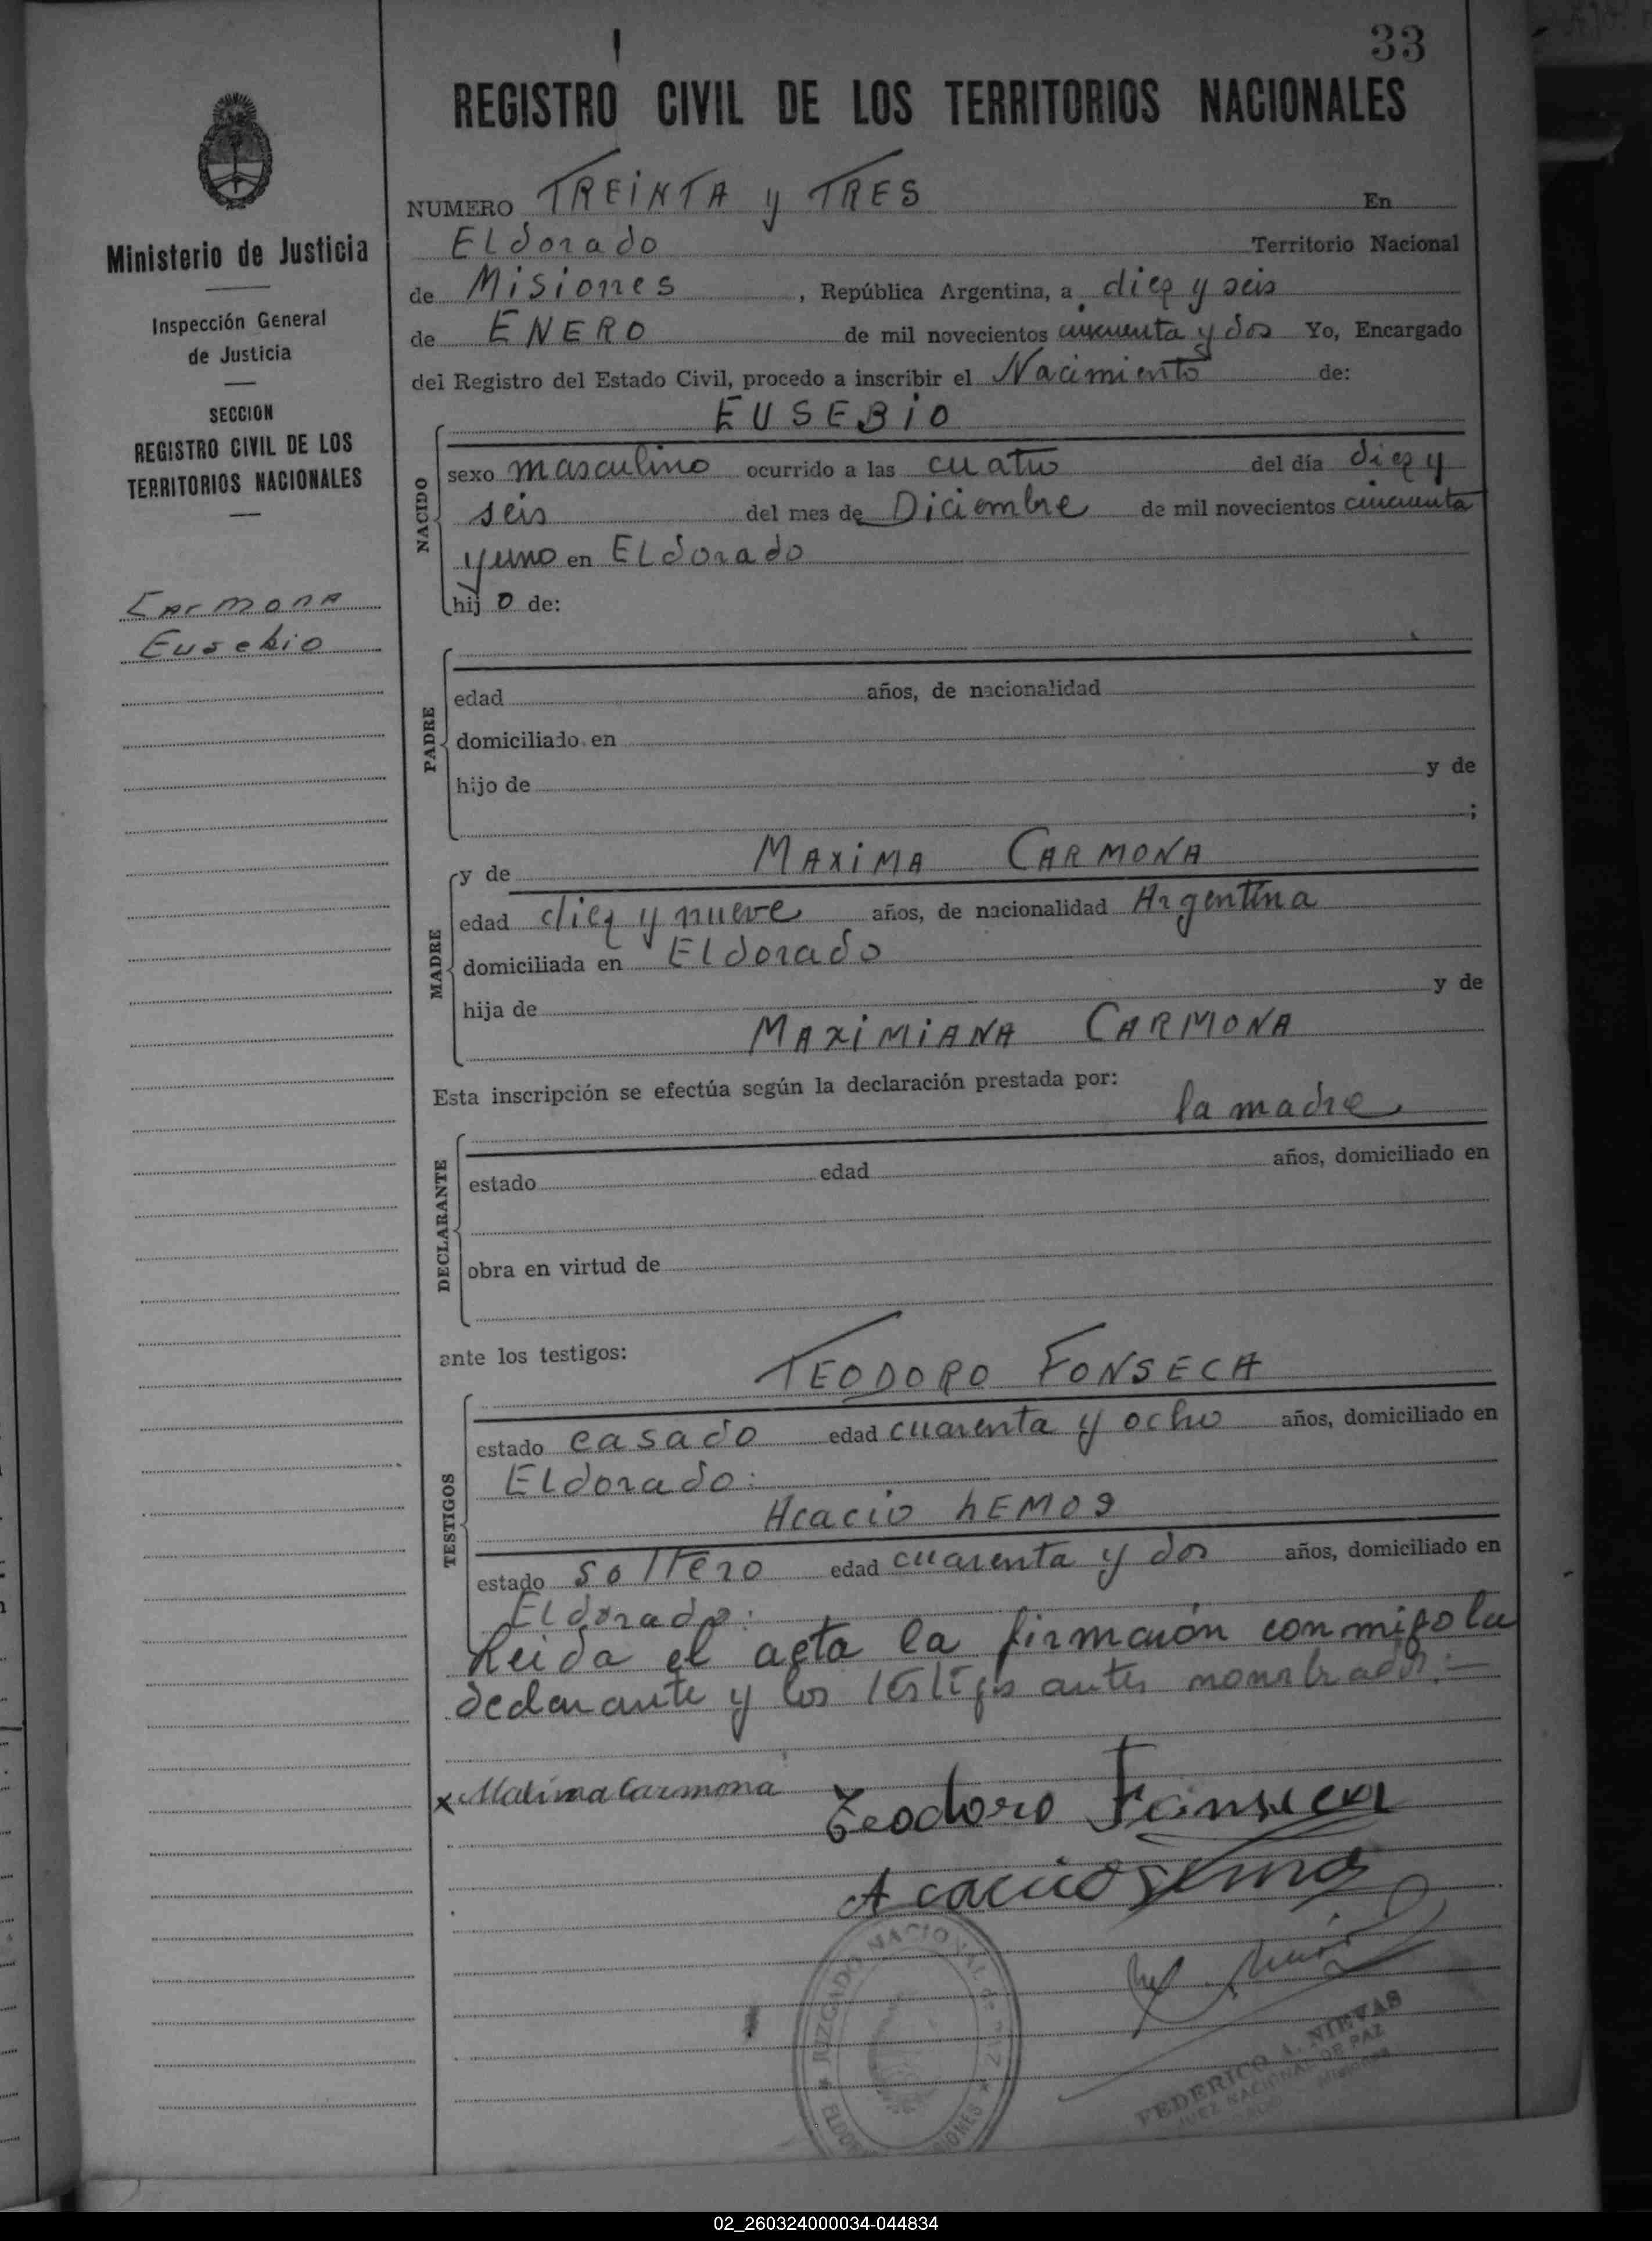 33
REGISTRO CIVIL DE LOS TERRITORIOS NACIONALES
Ministerio de Justicia
Inspección General
de Justicia
SECCION
REGISTRO CIVIL DE LOS
TERRITORIOS NACIONALES
Carmona
Eusebio
NUMERO TREINTA y TRES En
ELdorado Territorio Nacional
de Misiones, República Argentina, a diez y seis
de ENERO de mil novecientos cincuenta y dos Yo, Encargado
del Registro del Estado Civil, procedo a inscribir el Nacimiento de:
EUSEBIO
NACIDO
sexo masculino ocurrido a las cuatro del día diez y
seis del mes de Diciembre de mil novecientos cincuenta
y uno en ELdorado
hijo de:
PADRE
edad años, de nacionalidad
domiciliado en
hijo de y de
;
MADRE
y de MAXIMA CARMONA
edad diez y nueve años, de nacionalidad Argentina
domiciliada en ELdorado
hija de y de
MAXIMIANA CARMONA
Esta inscripción se efectúa según la declaración prestada por:
la madre
DECLARANTE
estado edad años, domiciliado en
obra en virtud de
ante los testigos:
TEODORO FONSECA
TESTIGOS
estado casado edad cuarenta y ocho años, domiciliado en
ELdorado:
Acacio LEMOS
estado soltero edad cuarenta y dos años, domiciliado en
ELdorado:
Leida el acta la firmarón conmigo la
declarante y los testigos antes nombrados:—
x Malima Carmona
Teodoro Fonseca
Acacio Lemos
JUZGADO NACIONAL DE PAZ
ELDORADO MISIONES
FEDERICO A. NIEVAS
JUEZ NACIONAL DE PAZ
02_260324000034-044834